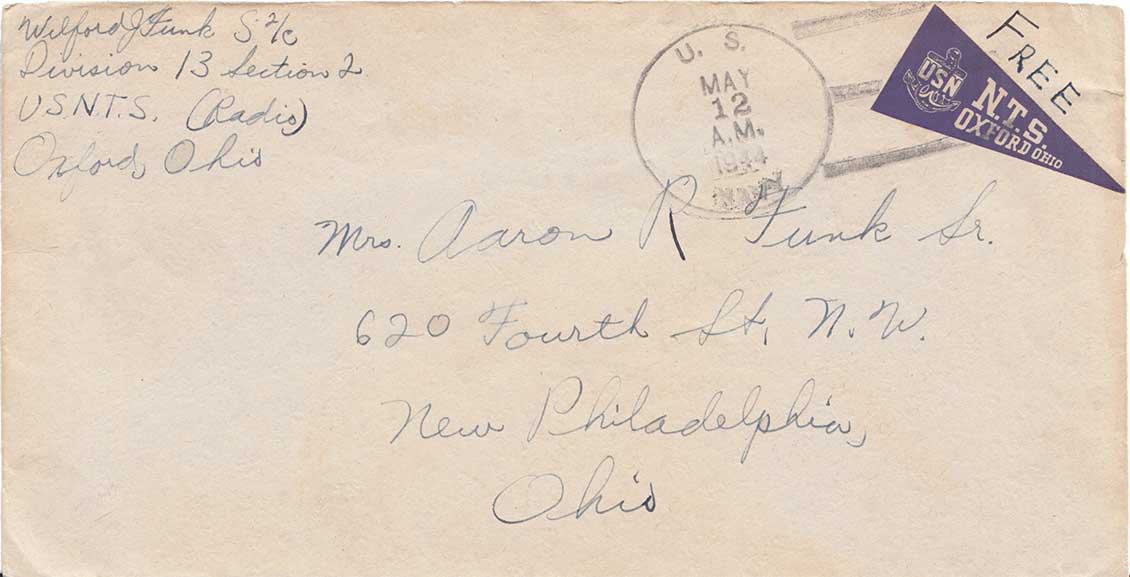 Wilford J Funk S 2/c
Division 13 Section 2
U.S.N.T.S. (Radio)
Oxford, Ohio
U. S.
MAY
12
A.M.
1944
NAVY
FREE
USN
N.T.S.
OXFORD OHIO
Mrs. Aaron R Funk Sr.
620 Fourth St, N.W.
New Philadelphia,
Ohio